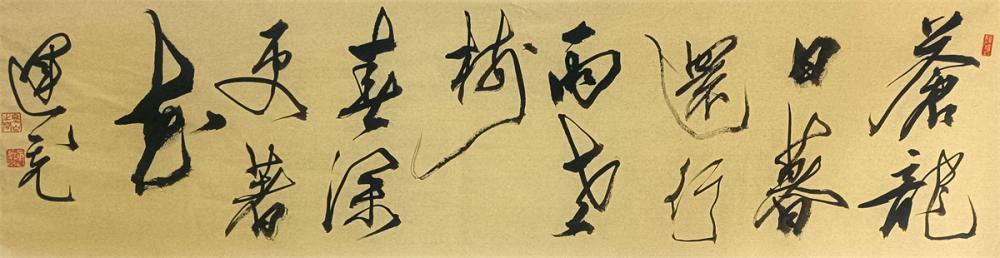 蒼龍
日暮
還行
雨老
樹
春深
更著
花